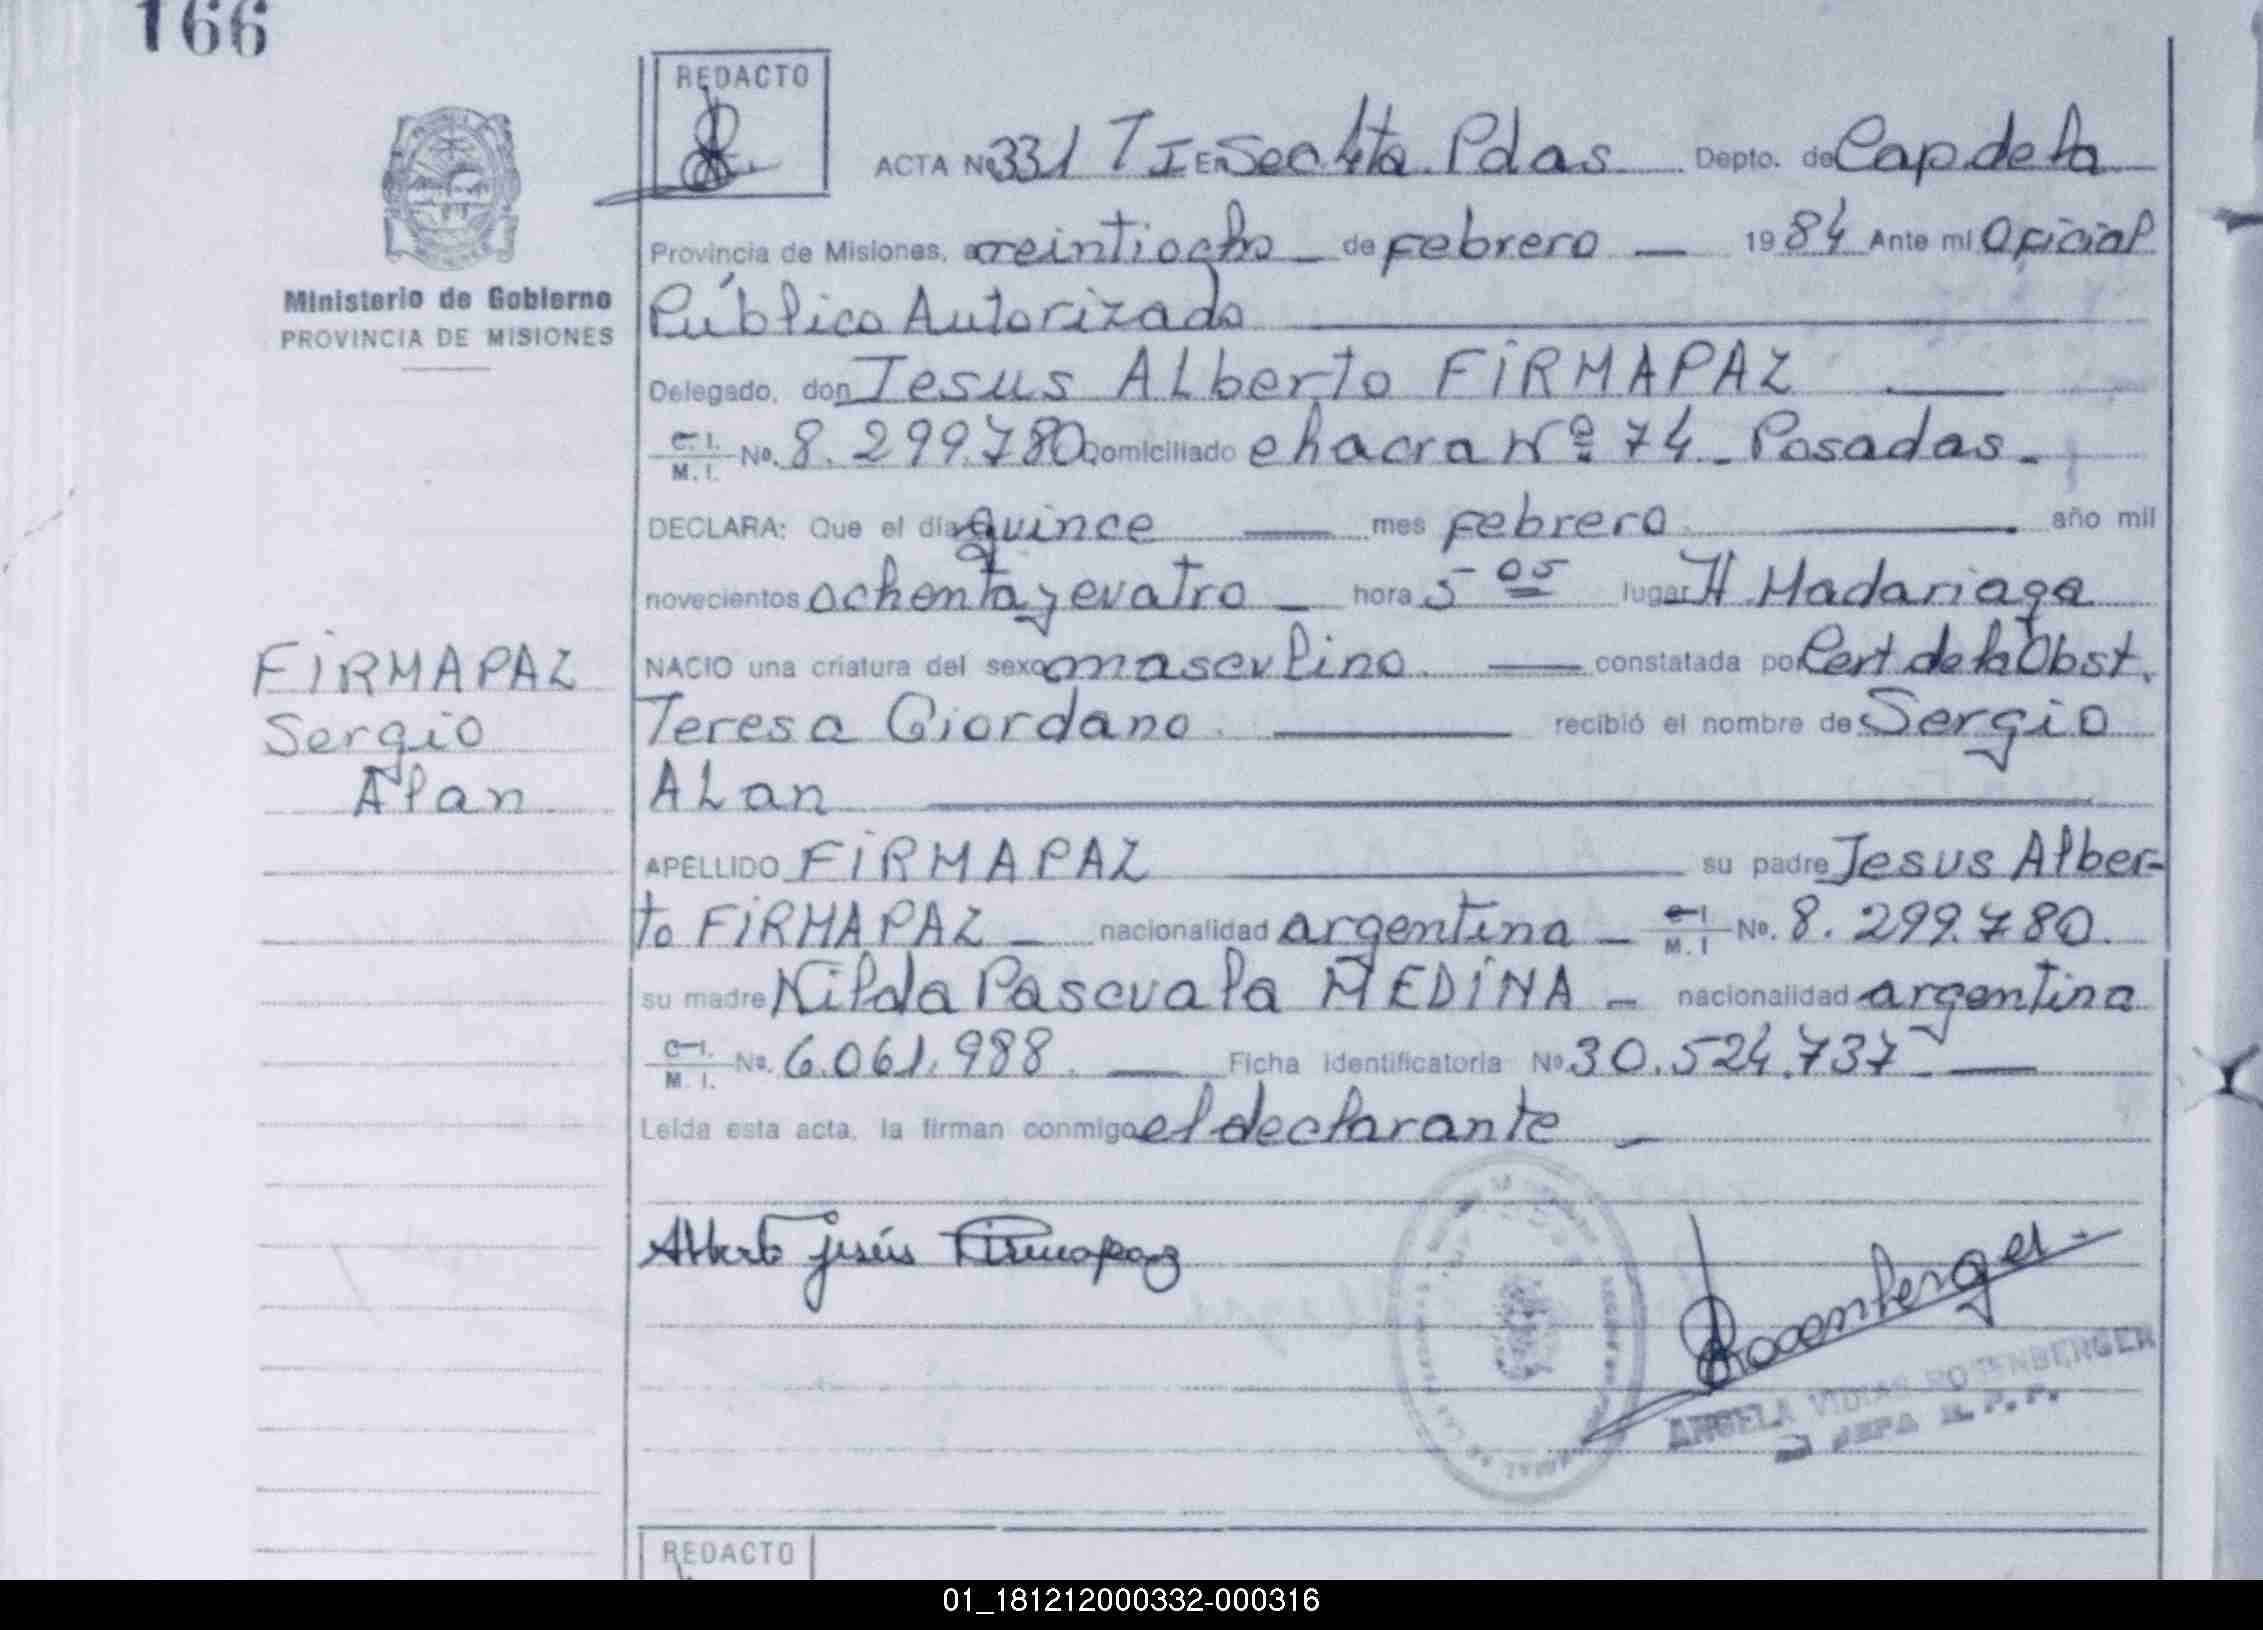 166
REDACTO
ACTA Nº 331 T I En Sec 4ta Pdas Depto. de Cap de la
Provincia de Misiones, a veintiocho de Febrero 1984 Ante mi Oficial
Público Autorizado
Ministerio de Gobierno
PROVINCIA DE MISIONES
Delegado, don Jesus Alberto FIRMAPAZ
C. I. M. I. No. 8.299.780 Domiciliado chacra Nº 74 - Posadas -
DECLARA: Que el día quince mes Febrero año mil
novecientos ochenta y cuatro hora 5 05 lugar H. Madariaga
NACIO una criatura del sexo masculino constatada por Cert. de la Obst.
Teresa Giordano recibió el nombre de Sergio
Alan
FIRMAPAZ
Sergio
Alan
APELLIDO FIRMAPAZ su padre Jesus Alber-
to FIRMAPAZ nacionalidad argentina C. I. M. I No. 8.299.780
su madre Nilda Pascuala MEDINA nacionalidad argentina
C. I. M. I. No. 6.061.988 Ficha identificatoria No 30.524.737
Leída esta acta, la firman conmigo el declarante
Alberto Jesús Firmapaz
Rosenberger
ANGELA ROSENBERGER
REDACTO
01_181212000332-000316